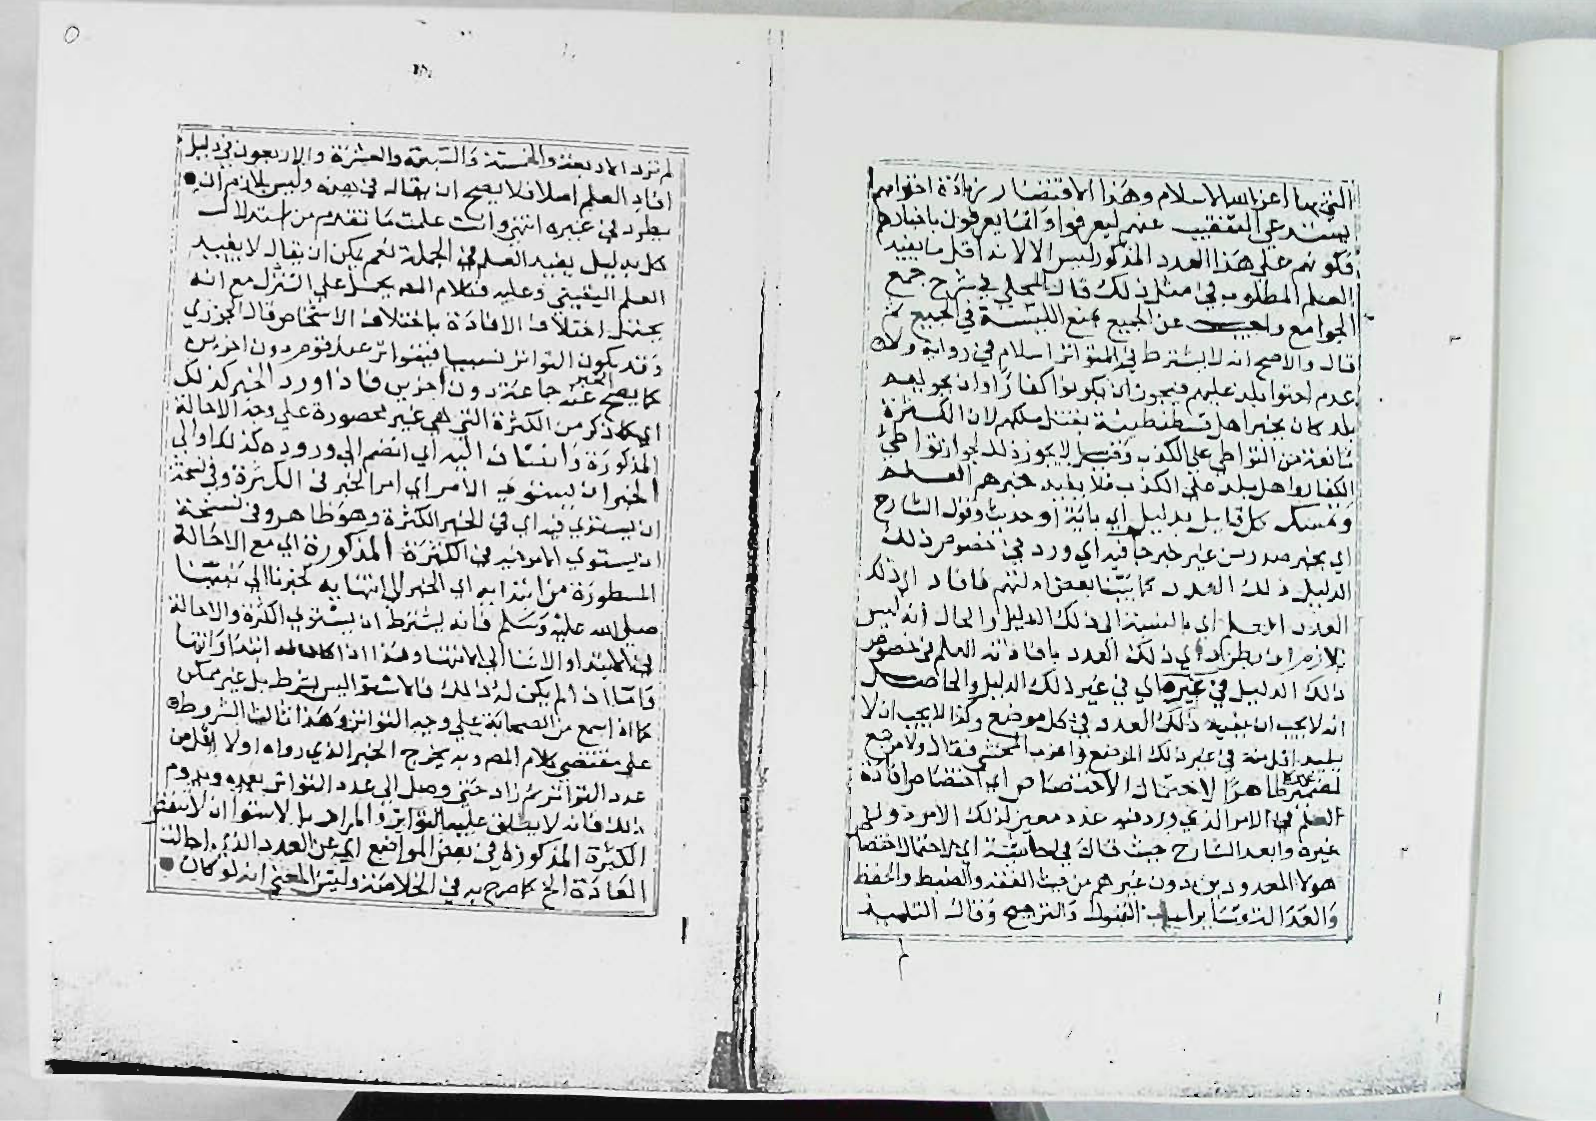 التي بها اعز الله الاسلام وهذا الاقتضار زيادة احترامهم
يستدعي التنقيب عنهم ليعرفوا وانما يعرفون باخبارهم
فكونهم على هذا العدد المذكور ليس الا لانه اقل ما يفيد
العلم المطلوب في مثل ذلك قال المحلي في شرح جمع
الجوامع واجيب عن الجميع بمنع الليسية في الجميع ثم
قال والاصح انه لا يشترط في المتواتر اسلام في رواته ولا
عدم احتوا بلد عليهم فيجوز ان يكونوا كفارا وان يحويهم
بلد كان يخبر اهل قسطنطينية بقتل ملكهم لان الكثرة
مانعة من التواطي على الكذب وقيل لا يجوز ذلك لجواز تواطي
الكفار واهل بلد على الكذب فلا يفيد خبرهم العلم
وتمسك كل قايل بدليل اي باية او حديث وقول الشارح
اي بخبر صدر من غير خبر جا فيه اي ورد في خصوص ذلك
الدليل ذلك العدد كما بينا بعض ادلتهم فافاد اي ذلك
العدد العلم اي بالنسبة الى ذلك الدليل والحال انه ليس
بلازم ان يطرد اي ذلك العدد بافادته العلم في خصوص
ذلك الدليل في غيره اي في غير ذلك الدليل والحاصل
انه لا يجب ان يفيد ذلك العدد في كل موضع وكذا لا يجب ان لا
يفيد اقل منه في غير ذلك الموضع واعرب المحشي فقال ولا مرجع
لضميره ظاهرا لاحتمال الاختصاص اي اختصاص افادة
العلم في الامر الذي ورد فيه عدد معين لذلك الامر دون
غيره وابعد الشارح حيث قال في حاشيته اي لاحتمال اختصاص
هولا المعدودين دون غيرهم من حيث الفقه والضبط والحفظ
والعدالة وساير اسباب القبول والترجيح وقال التلميذ
لم تزد الاربعة والخمسة والسبعة والعشرة والاربعون في دليل
افاد العلم اصلا فلا يصح ان يقال في هذه وليس بلازم ان
يطرد في غيره انتهى وانت علمت ما تقدم من استدلال
كل بدليل يفيد العلم في الجملة نعم يمكن ان يقال لا يفيد
العلم اليقيني وعليه فكلام المص يحمل على التنزل مع انه
يحتمل اختلاف الافادة باختلاف الاشخاص قال الجزري
وقد يكون التواتر نسبيا فيتواتر عند قوم دون اخرين
كما يصح الخبر عند جماعة دون اخرين فاذا ورد الخبر كذلك
اي كما ذكر من الكثرة التي هي غير محصورة على وجه الاحالة
المذكورة وانضاف اليه اي انضم الى وروده كذلك او الى
الخبر ان يستوي الامر اي امر الخبر في الكثرة وفي نسخة
ان يستوي فيه اي في الخبر الكثرة وهو ظاهر وفي نسخة
ان يستوي الامر فيه في الكثرة المذكورة اي مع الاحالة
المسطورة من ابتدايه اي الخبر الى انتهايه كخبرنا الى نبينا
صلى الله عليه وسلم فانه يشترط ان يستوي الكثرة والاحالة
في الابتداء والاثنا الى الانتها وهذا اذا كان له ابتدا وانتها
واما اذا لم يكن له ذلك فالاستوا ليس بشرط بل غير ممكن
كما اذا سمع من الصحابة على وجه التواتر وهذا ثالث الشروط
على مقتضى كلام المص وبه يخرج الخبر الذي رواه اولا اقل من
عدد التواتر ثم زاد حتى وصل الى عدد التواتر بعده ويدوم
ذلك فانه لا يطلق عليه التواتر والمراد بالاستوا ان لا تنقص
الكثرة المذكورة في بعض المواضع اي عن العدد الذي احالت
العادة الخ كما صرح به في الخلاصة وليس المعنى انه لو كان